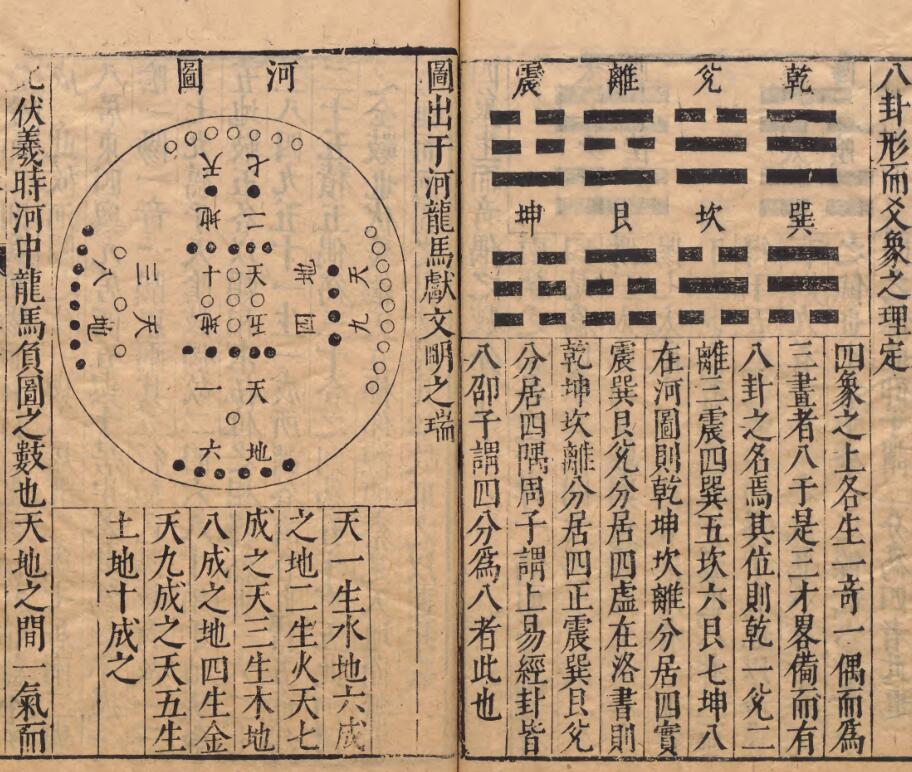 八卦形而爻象之理定
乾兊離震
巽坎艮坤
四象之上各生一竒一偶而爲
三畫者八于是三才畧備而有
八卦之名焉其位則乾一兊二
離三震四巽五坎六艮七坤八
在河圖則乾坤坎離分居四實
震巽艮兊分居四虛在洛書則
乾坤坎離分居四正震巽艮兊
分居四隅周子謂上易經卦皆
八卲子謂四分為八者此也
圖出于河龍馬獻文明之瑞
河圖
天七
地二
天九
地四
天五
地十
天三
地八
天一
地六
天一生水地六成
之地二生火天七
成之天三生木地
八成之地四生金
天九成之天五生
土地十成之
伏羲時河中龍馬負圖之數也天地之間一氣而